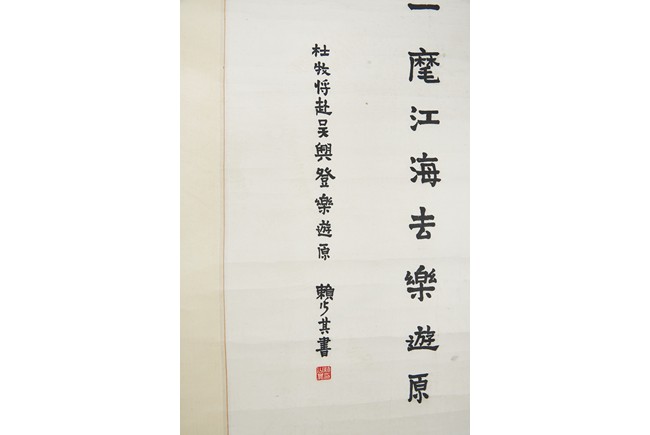 一麾江海去樂遊原
杜牧将赴吴興登樂遊原 賴少其書